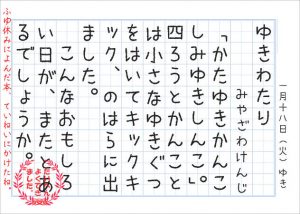 一月十八日（火）ゆき
ゆきわたり
みやざわけんじ
「かたゆきかんこ
しみゆきしんこ。」
四ろうとかんこと
は小さなゆきぐつ
をはいてキックキ
ック、のはらに出
ました。
こんなおもしろ
い日が、またとあ
るでしょうか。
ふゆ休みによんだ本、ていねいにかけたね。